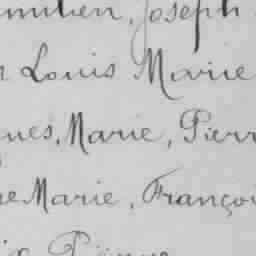 milien, Joseph
Louis Marie
ques, Marie, Pierr
e Marie, Françoi
Pierre